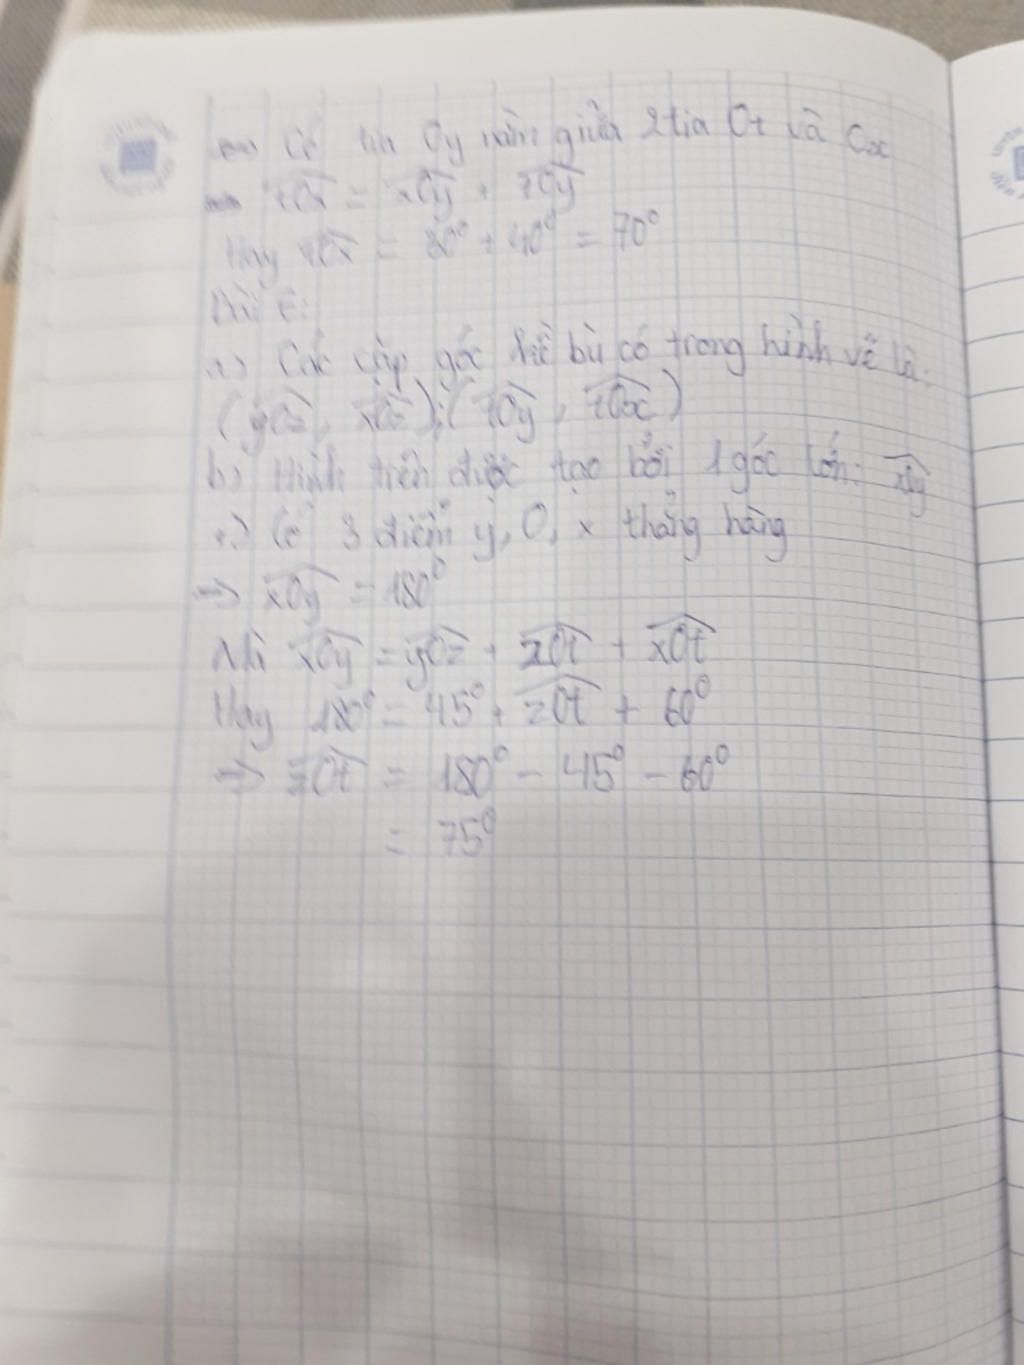 Có tia Oy nằm giữa 2 tia Ot và Ox
tOx = xOy + tOy
Hay tOx = 30° + 40° = 70°
Bài 6:
a) Các cặp góc kề bù có trong hình vẽ là:
(yOz, xOz); (tOy, tOx)
b) Hình trên được tạo bởi 1 góc lớn: xOy
c) Có 3 điểm y, O, x thẳng hàng
=> xOy = 180°
Mà xOy = yOz + zOt + xOt
Hay 180° = 45° + zOt + 60°
=> zOt = 180° - 45° - 60°
= 75°